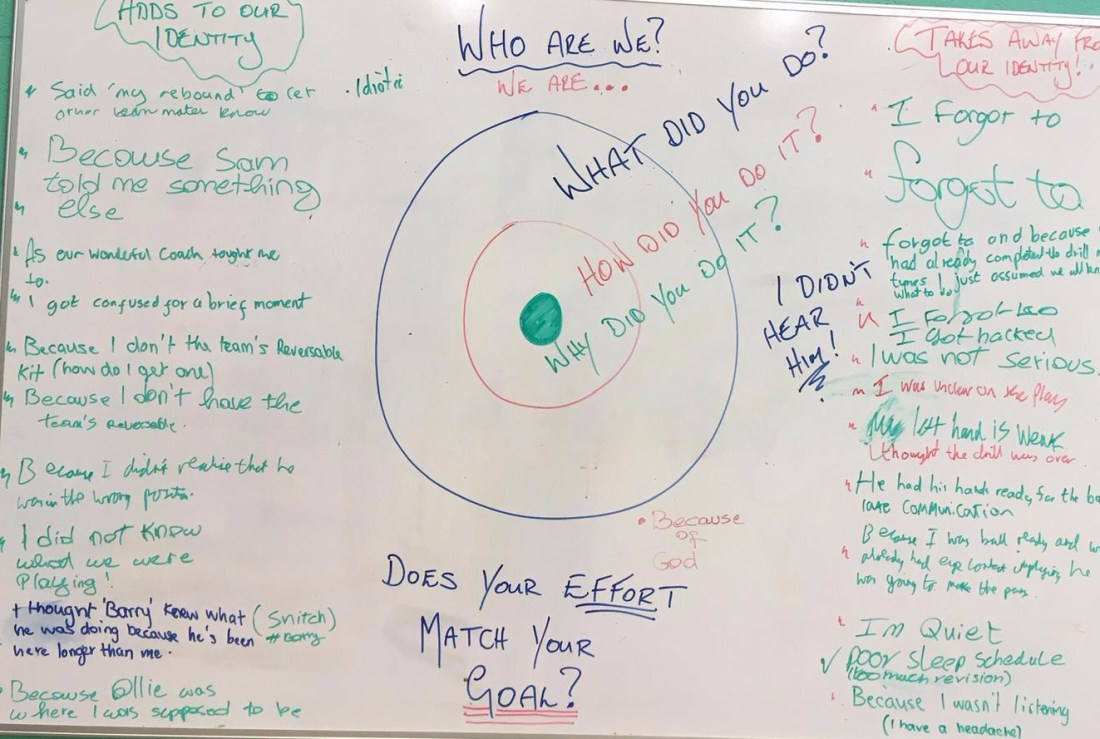 ADDS TO OUR
IDENTITY
Said 'my rebound' to let
other team mates know
Becouwse Sam
told me something
else
As our wonderful Coach taught me
to.
I got confused for a brief moment
Because I don't the team's Reversable
Kit (how do I get one)
Because I don't have the
team's
Because I didn't realise that he
was in the wrong
I did not know
what we were
Playing!
I thought 'Barry' knew what
he was doing because he's been
here longer than me.
(Snitch)
#Barry
Because Ollie was
where I was supposed to be
WHO ARE WE?
WE ARE...
WHAT DID YOU DO?
HOW DID YOU DO IT?
WHY DID YOU DO IT?
I DIDN'T
HEAR
HIM!
Because
of
God
DOES YOUR EFFORT
MATCH YOUR
GOAL?
TAKES AWAY FRO
OUR IDENTITY!
I Forgot to
forgot to
forgot to and because
had already completed the drill
I just assumed we all
what to do
I Forgot too
I Got hacked
I was not serious.
I was unclear on the play
My left hand is weak
I thought the drill was over
He had his hands ready for the
late communication
Because I was ball ready and
already had eye contact implying he
was going to make the pass.
I'm Quiet
poor sleep schedule
(too much revision)
Because I wasn't listening
(I have a headache)